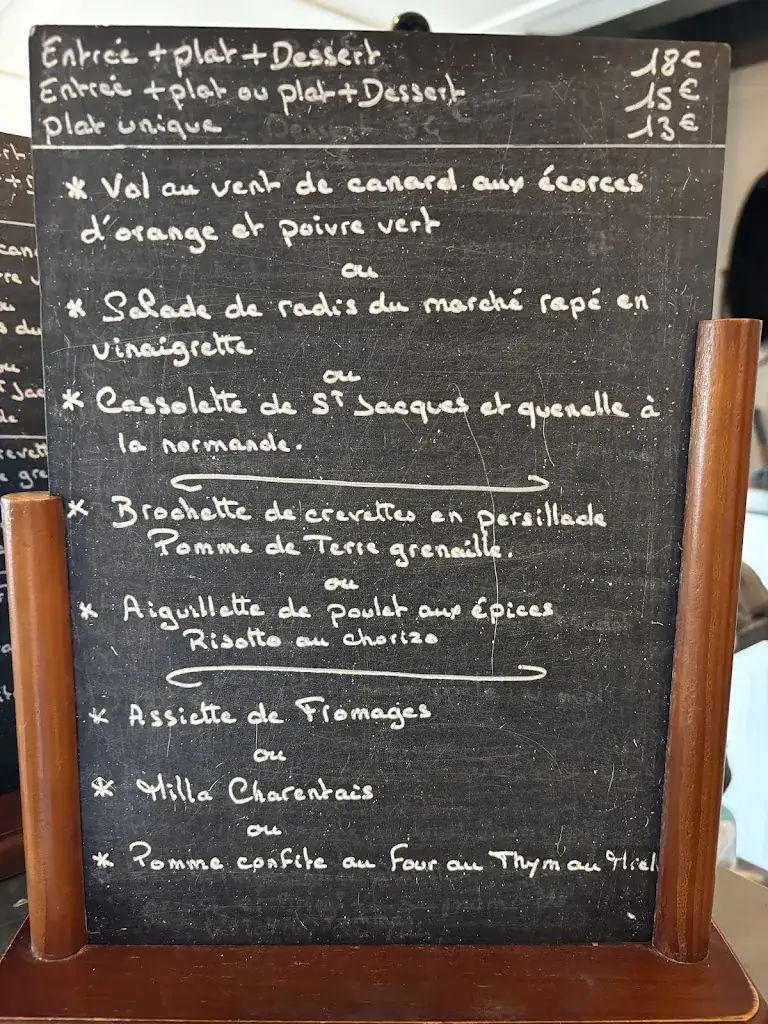 Entrée + plat + Dessert 18€
Entrée + plat ou plat + Dessert 15€
plat unique 13€
* Vol au vent de canard aux écorces
d'orange et poivre vert
ou
* Salade de radis du marché rapé en
vinaigrette
ou
* Cassolette de St Jacques et quenelle à
la normande.
* Brochette de crevettes en persillade
Pomme de Terre grenaille.
ou
* Aiguillette de poulet aux épices
Risotto au chorizo
* Assiette de Fromages
ou
* Milla Charentais
ou
* Pomme confite au Four au Thym au Miel